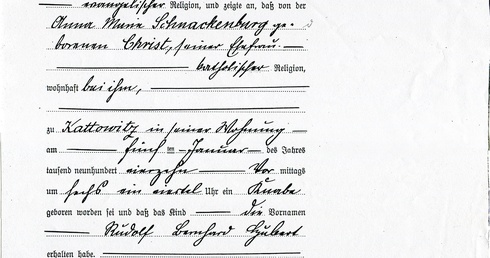 evangelischer Religion, und zeigte an, daß von der
Anna Marie Schnackenburg ge-
borenen Christ, seiner Ehefrau
katholischer Religion,
wohnhaft bei ihm,
zu Kattowitz in seiner Wohnung
am fünften Januar des Jahres
tausend neunhundert vierzehn Vor mittags
um sechs ein viertel Uhr ein Knabe
geboren worden sei und daß das Kind die Vornamen
Rudolf Bernhard Hubert
erhalten habe.